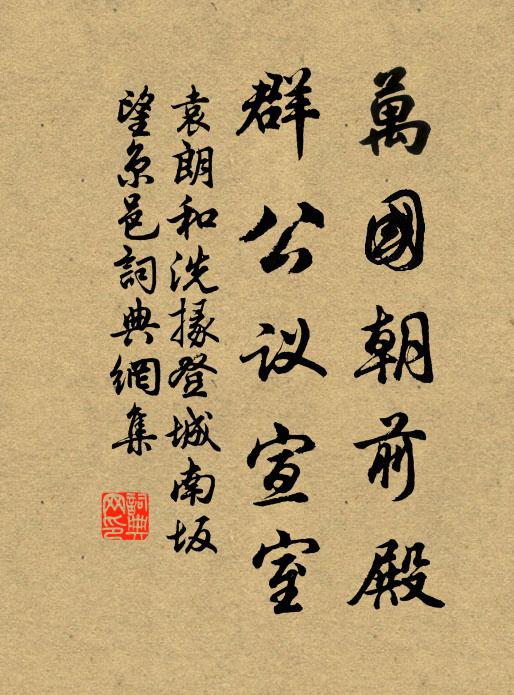 萬國朝前殿
群公议宣室
袁朗和洗掾登城南坂
望京邑詞典網集
詞典网印